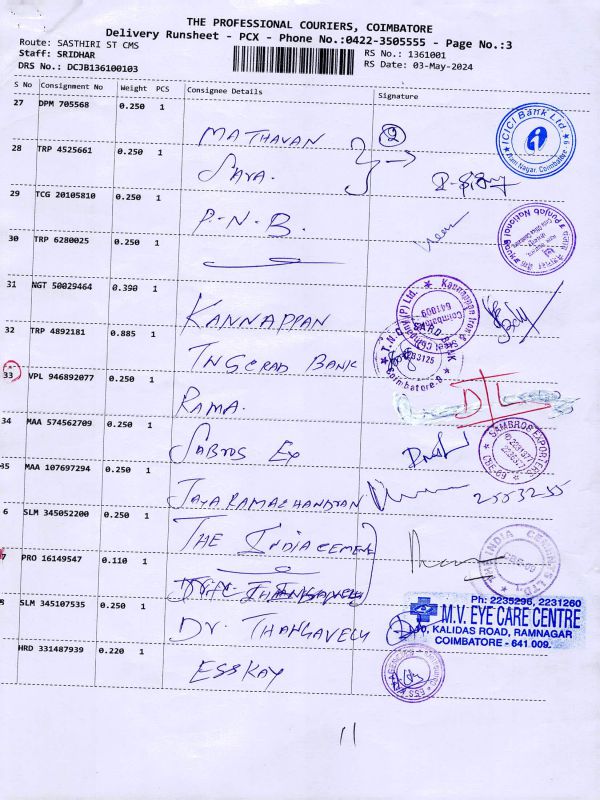 THE PROFESSIONAL COURIERS, COIMBATORE
Delivery Runsheet - PCX - Phone No.:0422-3505555 - Page No.:3
Route: SASTHIRI ST CMS
RS No.: 1361001
Staff: SRIDHAR
RS Date: 03-May-2024
DRS No.: DCJB136100103
S No Consignment No Weight PCS Consignee Details Signature
27 DPM 705568 0.250 1
MATHAVAN
ICICI Bank Ltd.
Ram Nagar, Coimbatore
28 TRP 4525661 0.250 1
SARA.
29 TCG 20105810 0.250 1
P.N.B.
Punjab National Bank
30 TRP 6280025 0.250 1
31 NGT 50029464 0.390 1
KANNAPPAN
Kannappan Iron & Steel Company (P) Ltd.
Coimbatore
641009
32 TRP 4892181 0.885 1
TNGERAD BANK
T.N.G. BANK
Coimbatore-9
33 VPL 946892077 0.250 1
RAMA.
DL
34 MAA 574562709 0.250 1
SABROS EX
SAMBROF EXPORTERS
CBE-09
35 MAA 107697294 0.250 1
JAYARAMACHANDRAN
2553255
6 SLM 345052200 0.250 1
THE INDIA CEMENE
7 PRO 16149547 0.110 1
8 SLM 345107535 0.250 1
DR. THANGAVELU
Ph: 2235296, 2231260
M.V. EYE CARE CENTRE
KALIDAS ROAD, RAMNAGAR
COIMBATORE - 641 009.
HRD 331487939 0.220 1
ESSKAY
11